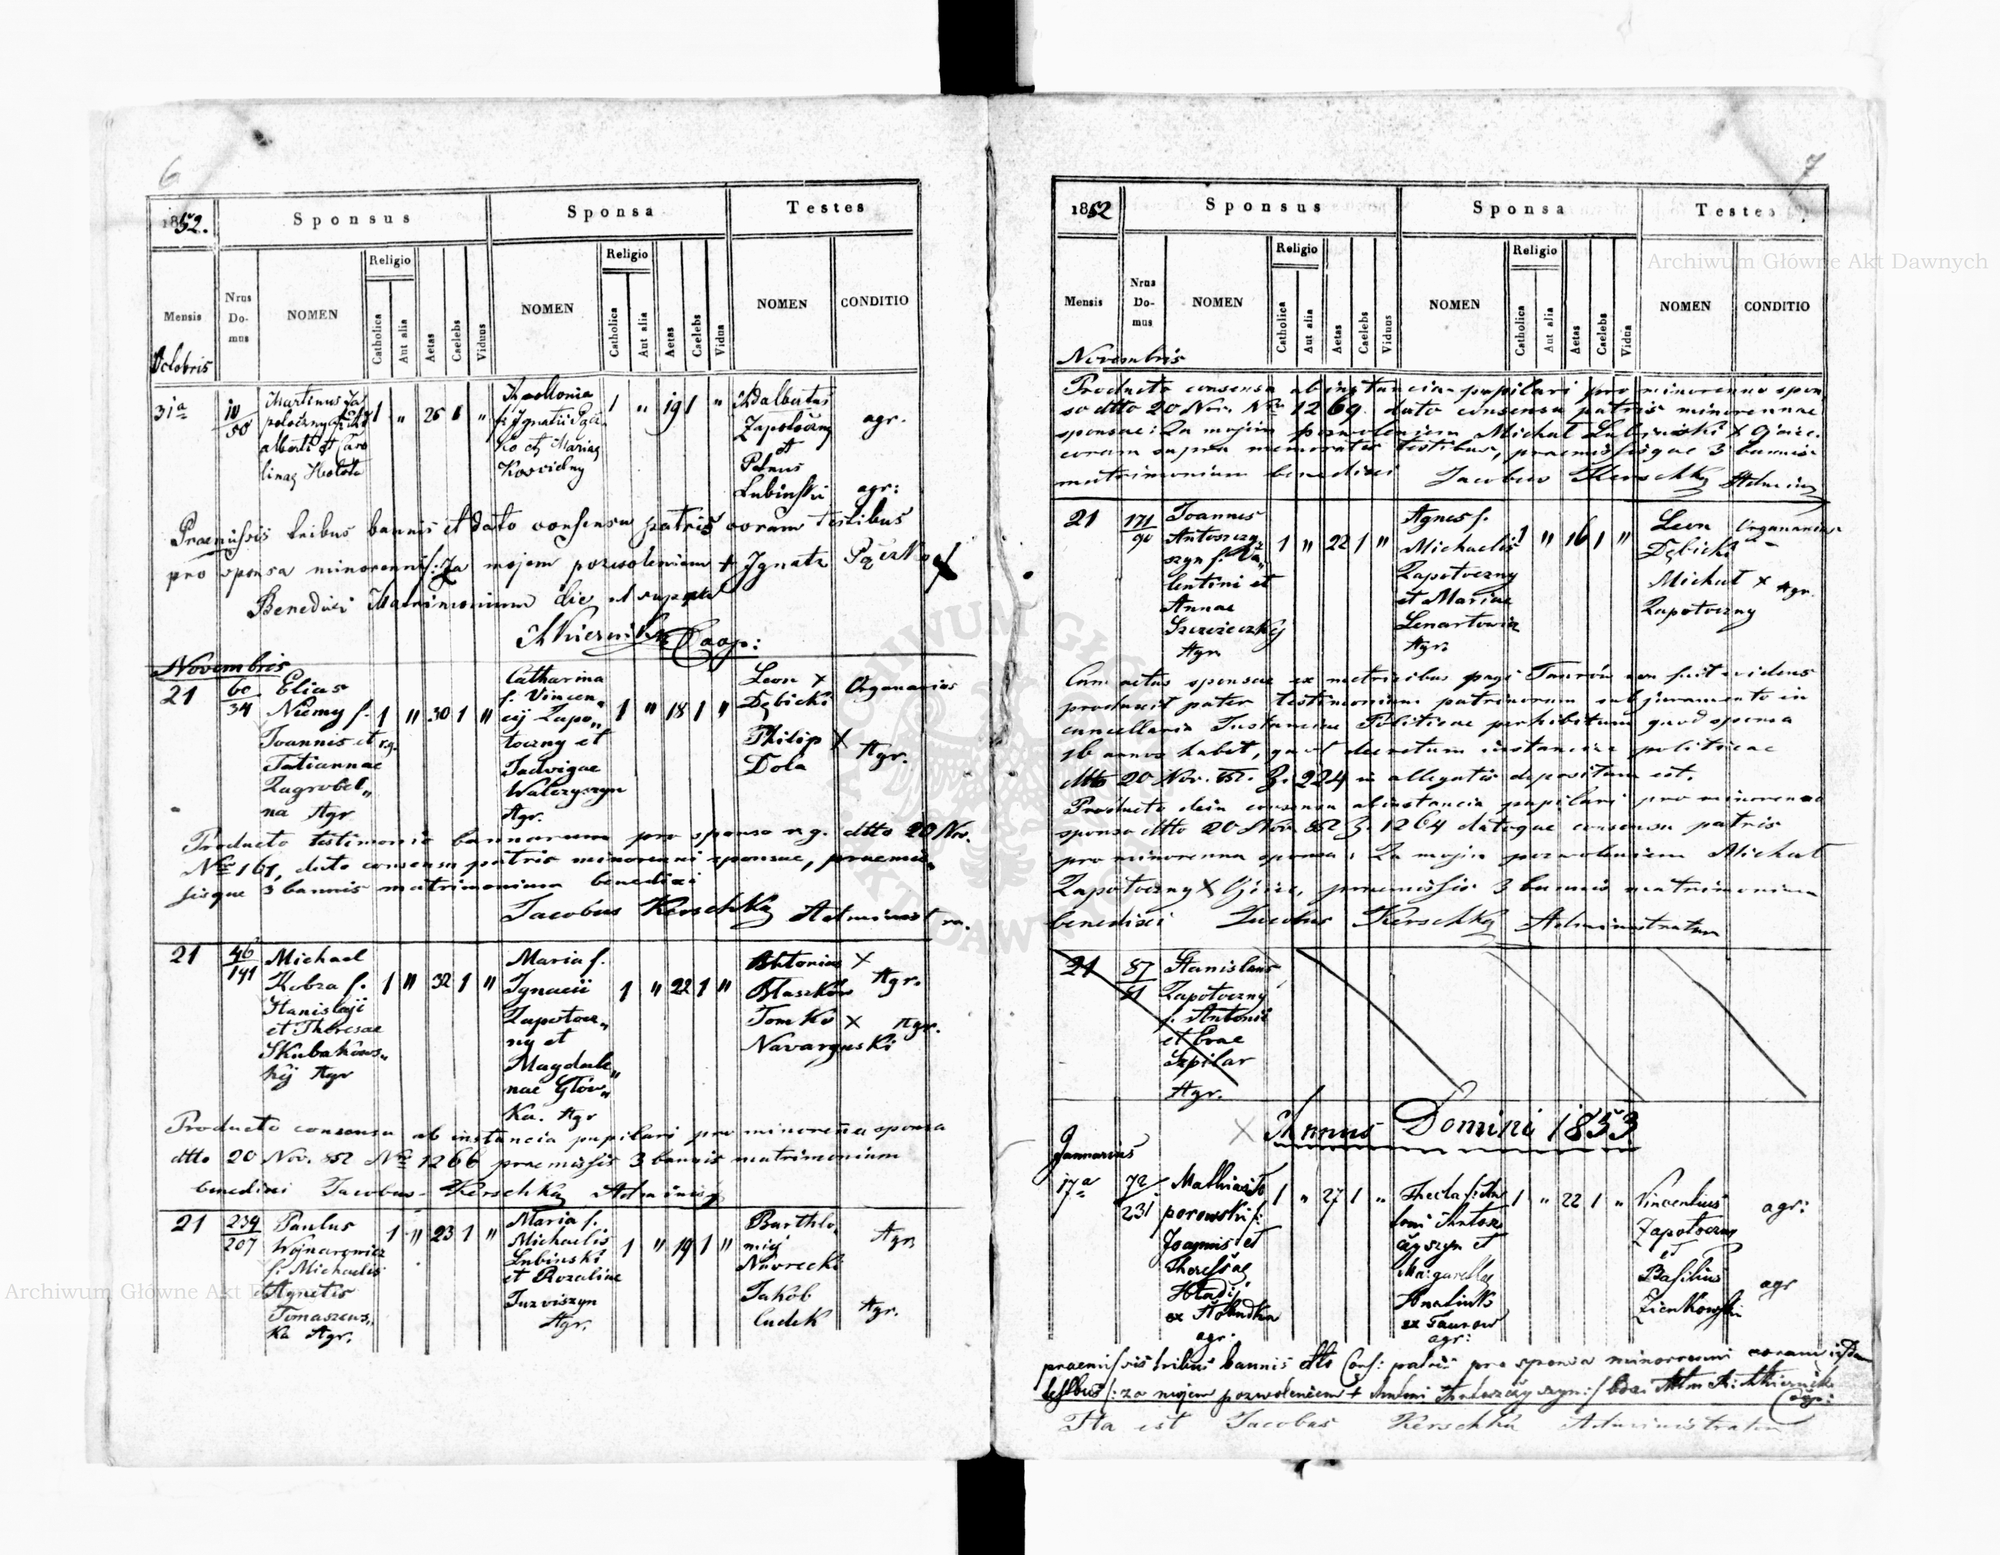 6
1852.
Sponsus
Sponsa
Testes
Mensis
Nrus Do- mus
NOMEN
Religio
Catholica
Aut alia
Aetas
Caelebs
Viduus
NOMEN
Religio
Catholica
Aut alia
Aetas
Caelebs
Vidua
NOMEN
CONDITIO
Octobris
31a
10
50
Martinus Za
poloczny f:
alberti et Caro
linae
1 " 26 1 "
Apollonia
f: Ignatii
ko et Mariae
1 " 19 1 "
Adalbertus
Zapotoczny
et
Petrus
Lubinski
agr.
agr:
Praemissis tribus bannis et dato consensu patris coram testibus
pro sponsa minorenni: Za mojem pozwoleniem + Ignatz Pączko
Benedixi Matrimonium die ut supra
Coop:
Novembris
21
60
34
Elias
Niemy f.
Joannis et r.g.
Tatiannae
Zagrobel„
na Agr
1 " 30 1 "
Catharina
f. Vincen„
cij Zapo„
toczny et
Jadvigae
Walczyszyn
Agr.
1 " 18 1 "
Leon X
Dębicki
Philip X
Dola
Organarius
Agr.
Producto testimonio bannorum pro sponso r.g. dtto 20 Nov.
Nro 161, dato consensu patris minorenni sponsae, praemis„
sisque 3 bannis matrimonium benedixi
Jacobus Kerschka Administra.
21
46
141
Michael
Kobza f.
Stanislaji
et Theresae
Skubakows„
kij Agr
1 " 32 1 "
Maria f.
Ignacii
Zapotocz„
ny et
Magdale„
nae Głów„
ka. Agr
1 " 22 1 "
Antonius X
Blaszków
Tomko X
Navarynski
Agr.
Agr.
Producto consensu ab instancia pupilari pro minorena sponsa
dtto 20 Nov. 852 Nro 1266 praemissis 3 bannis matrimonium
benedixi Jacobus Kerschka Adminis
21
234
207
Paulus
Wojnarowicz
f. Michaelis
Agnetis
Tomaszews„
ka Agr.
1 " 23 1 "
Maria f.
Michaelis
Lubinski
et Rozaliae
Juzviszyn
Agr.
1 " 19 1 "
Barthlo„
miej
Navrocki
Jakób
Ludek
Agr.
Agr.
7
1852
Sponsus
Sponsa
Testes
Mensis
Nrus Do- mus
NOMEN
Religio
Catholica
Aut alia
Aetas
Caelebs
Viduus
NOMEN
Religio
Catholica
Aut alia
Aetas
Caelebs
Vidua
NOMEN
CONDITIO
Novembris
Producto consensu ab instancia pupilari pro minorenno spon
so dtto 20 Nov. Nro 1269. dato consensu patris minorennae
sponsae: Za mojim pozwoleniem Michał Lubinski X Ojciec.
coram supra memoratis testibus, praemissisque 3 bannis
matrimonium benedixi Jacobus Kerschka Adminis
21
171
90
Joannes
Antoszczy„
szyn f. Va„
lentini et
Annae
Agr.
1 " 22 1 "
Agnes f.
Michaelis
Zapotoczny
et Mariae
Lenartowicz
Agr.
1 " 16 1 "
Leon
Dębicki
Michał X
Zapotoczny
Organarius
Agr.
Cum actus sponsae ex metricibus pagi Taurów non fuit evidens
produxit pater testimonium patrinorum sub juramento in
cancellaria Instanciae Politicae perhibitum quod sponsa
16 annos habet, quod decretum instanciae politicae
dtto 20 Nov. 852. Z. 224 in allegatis depositum est.
Producto dein consensu ab instancia pupilari pro minorenno
sponso dtto 20 Nov. 852 Z. 1264 datoque consensu patris
pro minorenna sponsa: Za mojim pozwoleniem Michał
Zapotoczny X Ojciec, praemissis 3 bannis matrimonium
benedixi Jacobus Kerschka Administrator
21
87
Stanislaus
Zapotoczny
f. Antonii
et Evae
Szpilar
Agr.
X Annus Domini 1853
Januarius
17a
72
231
Mathias To
porowski f:
Joannis et
Theressae
agr.
1 " 27 1 "
Thecla f: An
toni Antosz
czyszyn et
Margarethae
Hnatiuk
ex Taurow
agr:
1 " 22 1 "
Vincentius
Zapotoczny
et
Basilius
Zienkowski
agr:
agr
praemissis tribus bannis dtto Cons: patris pro sponsa minorenni coram
testibus: za mojem pozwoleniem +
Coop:
Ita est Jacobus Kerschka Administrator
Archiwum Główne Akt Dawnych
Archiwum Główne Akt D
ARCHIWUM GŁÓWNE AKT DAWNYCH